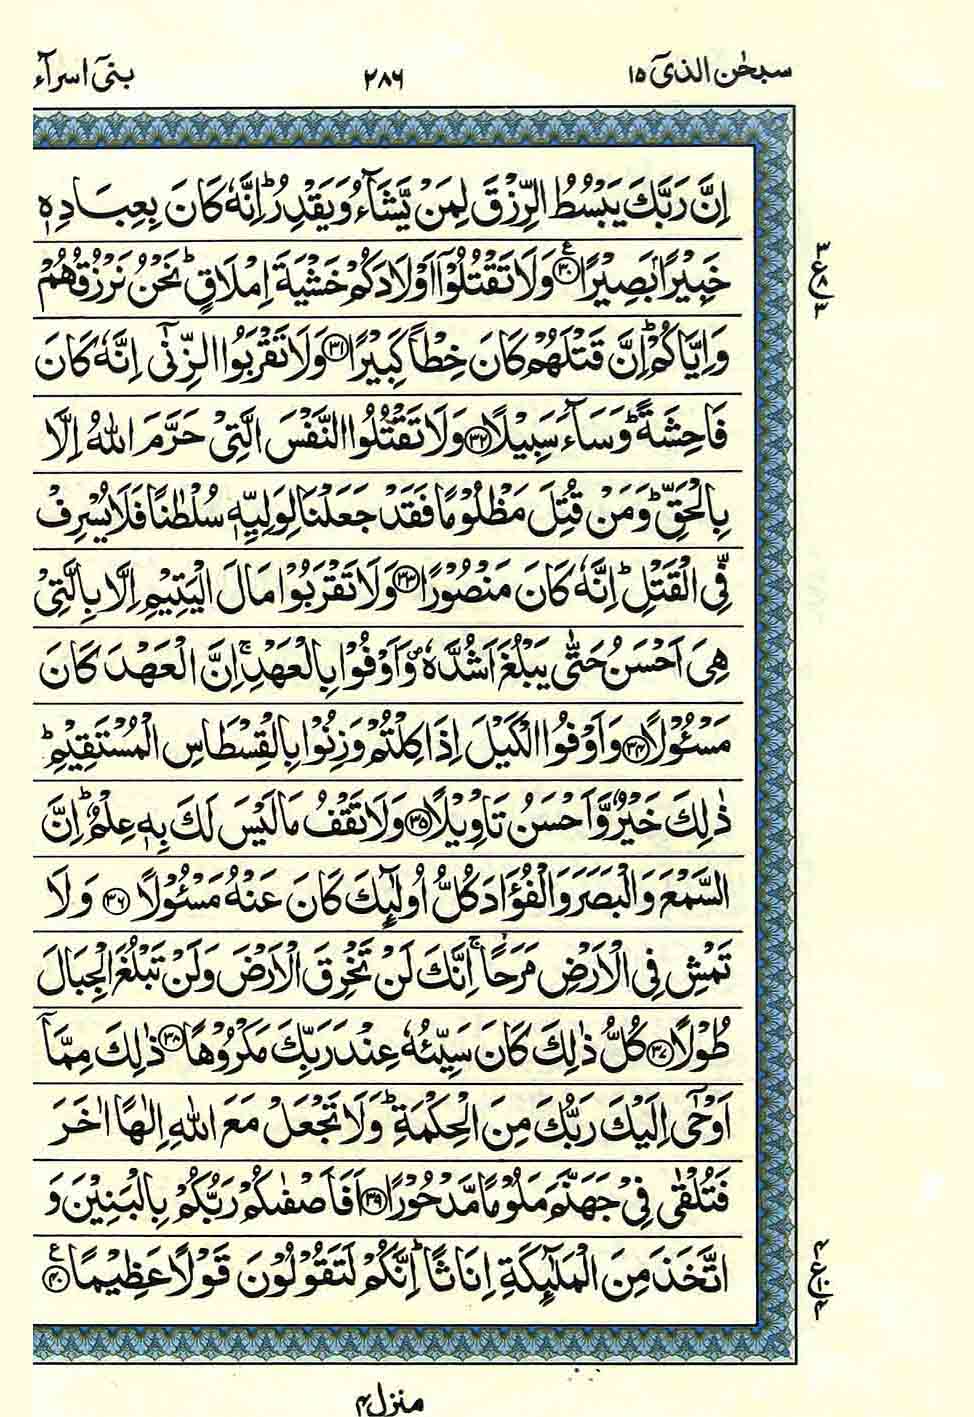 سبحٰن الذیٓ ۱۵
۲۸۶
بنیٓ اسرآء
اِنَّ رَبَّكَ يَبْسُطُ الرِّزْقَ لِمَنْ يَّشَآءُ وَيَقْدِرُ ؕ اِنَّهٗ كَانَ بِعِبَادِهٖ
خَبِيْرًۢا بَصِيْرًا ﴿۳۰﴾ وَلَا تَقْتُلُوْۤا اَوْلَادَكُمْ خَشْيَةَ اِمْلَاقٍ ؕ نَحْنُ نَرْزُقُهُمْ
وَاِيَّاكُمْ ؕ اِنَّ قَتْلَهُمْ كَانَ خِطْاً كَبِيْرًا ﴿۳۱﴾ وَلَا تَقْرَبُوا الزِّنٰۤى اِنَّهٗ كَانَ
فَاحِشَةً ؕ وَسَآءَ سَبِيْلًا ﴿۳۲﴾ وَلَا تَقْتُلُوا النَّفْسَ الَّتِيْ حَرَّمَ اللّٰهُ اِلَّا
بِالْحَقِّ ؕ وَمَنْ قُتِلَ مَظْلُوْمًا فَقَدْ جَعَلْنَا لِوَلِيِّهٖ سُلْطٰنًا فَلَا يُسْرِفْ
فِّي الْقَتْلِ ؕ اِنَّهٗ كَانَ مَنْصُوْرًا ﴿۳۳﴾ وَلَا تَقْرَبُوْا مَالَ الْيَتِيْمِ اِلَّا بِالَّتِيْ
هِيَ اَحْسَنُ حَتّٰى يَبْلُغَ اَشُدَّهٗ ۪ وَاَوْفُوْا بِالْعَهْدِ ۚ اِنَّ الْعَهْدَ كَانَ
مَسْـُٔوْلًا ﴿۳۴﴾ وَاَوْفُوا الْكَيْلَ اِذَا كِلْتُمْ وَزِنُوْا بِالْقِسْطَاسِ الْمُسْتَقِيْمِ ؕ
ذٰلِكَ خَيْرٌ وَّاَحْسَنُ تَاْوِيْلًا ﴿۳۵﴾ وَلَا تَقْفُ مَا لَيْسَ لَكَ بِهٖ عِلْمٌ ؕ اِنَّ
السَّمْعَ وَالْبَصَرَ وَالْفُؤَادَ كُلُّ اُولٰٓئِكَ كَانَ عَنْهُ مَسْـُٔوْلًا ﴿۳۶﴾ وَلَا
تَمْشِ فِي الْاَرْضِ مَرَحًا ۚ اِنَّكَ لَنْ تَخْرِقَ الْاَرْضَ وَلَنْ تَبْلُغَ الْجِبَالَ
طُوْلًا ﴿۳۷﴾ كُلُّ ذٰلِكَ كَانَ سَيِّئُهٗ عِنْدَ رَبِّكَ مَكْرُوْهًا ﴿۳۸﴾ ذٰلِكَ مِمَّاۤ
اَوْحٰۤى اِلَيْكَ رَبُّكَ مِنَ الْحِكْمَةِ ؕ وَلَا تَجْعَلْ مَعَ اللّٰهِ اِلٰهًا اٰخَرَ
فَتُلْقٰى فِيْ جَهَنَّمَ مَلُوْمًا مَّدْحُوْرًا ﴿۳۹﴾ اَفَاَصْفٰىكُمْ رَبُّكُمْ بِالْبَنِيْنَ وَ
اتَّخَذَ مِنَ الْمَلٰٓئِكَةِ اِنَاثًا ؕ اِنَّكُمْ لَتَقُوْلُوْنَ قَوْلًا عَظِيْمًا ﴿۴۰﴾
منزل ۴